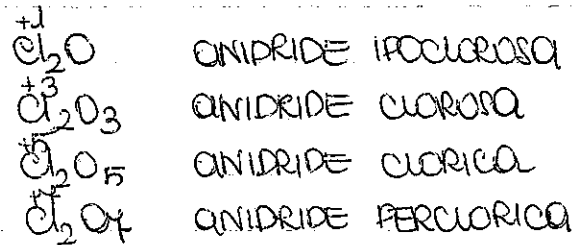 +1
Cl₂O ANIDRIDE IPOCLOROSA
+3
Cl₂O₃ ANIDRIDE CLOROSA
+5
Cl₂O₅ ANIDRIDE CLORICA
+7
Cl₂O₇ ANIDRIDE PERCLORICA